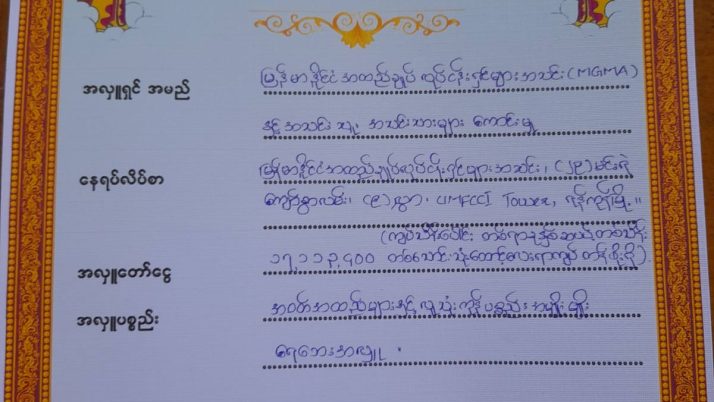 အလှူရှင် အမည် မြန်မာနိုင်ငံအထည်ချုပ်လုပ်ငန်းရှင်များအသင်း (MGMA)
နှင့် အသင်းသူ၊ အသင်းသားများ ကောင်းမှု
နေရပ်လိပ်စာ မြန်မာနိုင်ငံအထည်ချုပ်လုပ်ငန်းရှင်များအသင်း၊ (၂၉) မင်းရဲ
ကျော်စွာလမ်း၊ (၉) လွှာ၊ UMFCCI Tower, ရန်ကုန်မြို့။
(ကျပ်သိန်းပေါင်း တစ်ရာ
အလှူတော်ငွေ ၁၇,၁၁၃,၄၀၀ တစ်သောင်းသုံးထောင့်လေးရာကျပ် တန်ဖိုးရှိ)
အလှူပစ္စည်း အဝတ်အထည်များနှင့် လူသုံးကုန်ပစ္စည်း အမျိုးမျိုး
ရေဘေးအလှူ ။